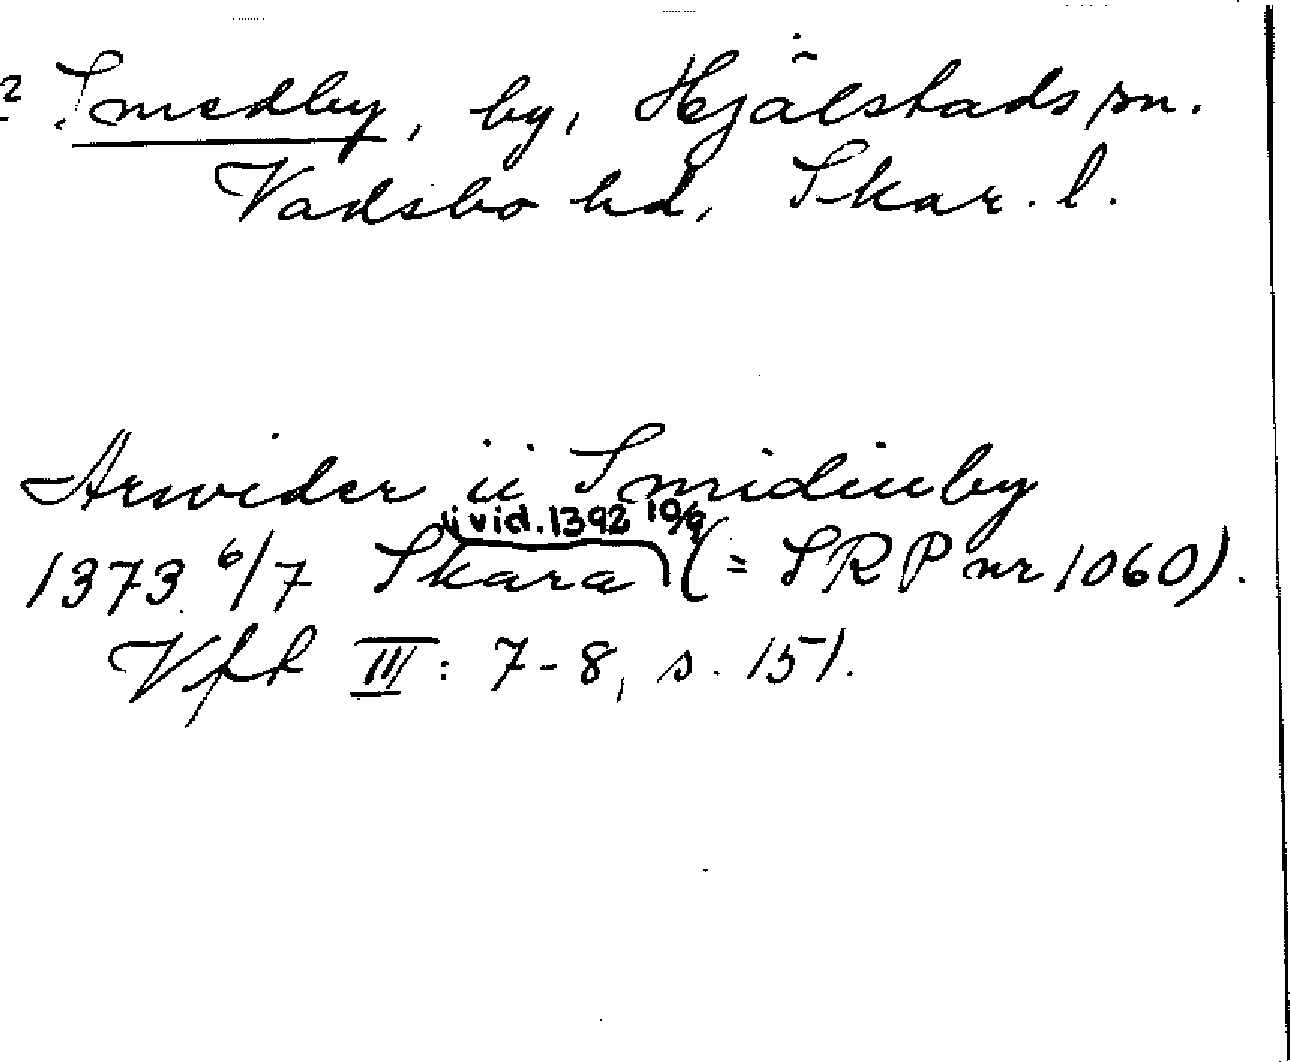 2 Smedby, by, Hjälstads sn.
Vadsbo hd, Skar. l.
Arwider ii Smidiuby
i vid. 1392 10/9
1373 6/7 Skara (= SRP nr 1060).
Vft III: 7-8, s. 151.